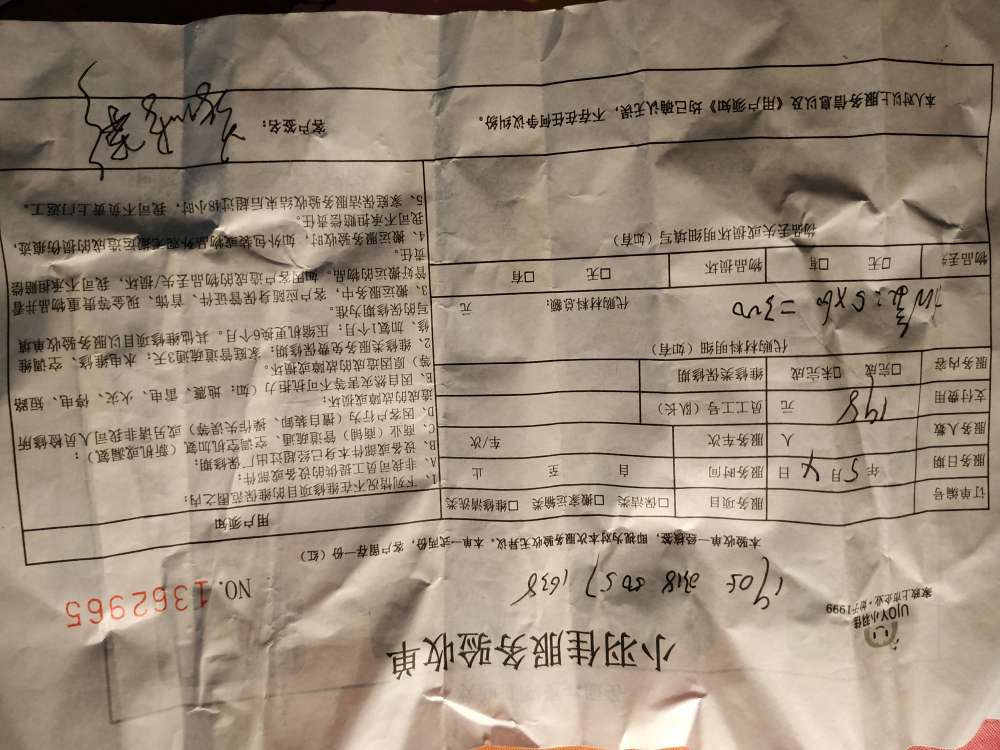 小羽佳服务验收单
UJOY小羽佳
家政上市企业·始于1999
NO. 1362965
1905 2318 5057 1638
本验收单一经签核，即视为对本次服务验收无异议，本单一式两份，客户留存一份（红）
订单编号 服务项目 □保洁类 □搬家搬运类 □维修清洗类
服务日期 年5月4日 服务时间 自 至 止
服务人数 人 服务车次 车/次
支付费用 198 元 员工工号（队长）
服务内容 □完成 □未完成 维修类保修期
代购材料明细（如有）
5×60 = 300
代购材料总额： 元
物品丢失 □无 □有 物品损坏 □无 □有
物品丢失或损坏明细填写（如有）
用户须知
1、下列情况不在维修项目的维保范围之内：
A、非我司员工提供的设备或部件；
B、设备或部件本身已经超过出厂保修期；
C、商业（商铺）管道疏通、空调空机加氟（新机或漏氟）；
D、因客户行为（擅自装卸、操作失误等）或另请非我司人员检修所
造成的故障或损坏；
E、因自然灾害等不可抗拒力（如：地震、雷电、火灾、停电、短路
等）原因造成的故障或损坏。
2、维修类服务免费保修期：家庭管道疏通3天；水电维修、空调维
修、加氟1个月；压缩机更换6个月。其他维修项目以服务验收单填
写的保修期为准。
3、搬运服务中，客户应随身保管证件、首饰、现金等贵重物品并看
管好搬运的物品。如因客户造成的物品丢失/损坏，我司不承担赔偿
责任。
4、搬运服务验收时，如外包装或物品外观无搬运造成的损伤痕迹，
我司不承担赔偿责任。
5、家庭保洁服务验收结束后超过48小时，我司不负责上门返工。
本人对以上服务信息以及《用户须知》均已确认无误，不存在任何争议纠纷。
客户签名：